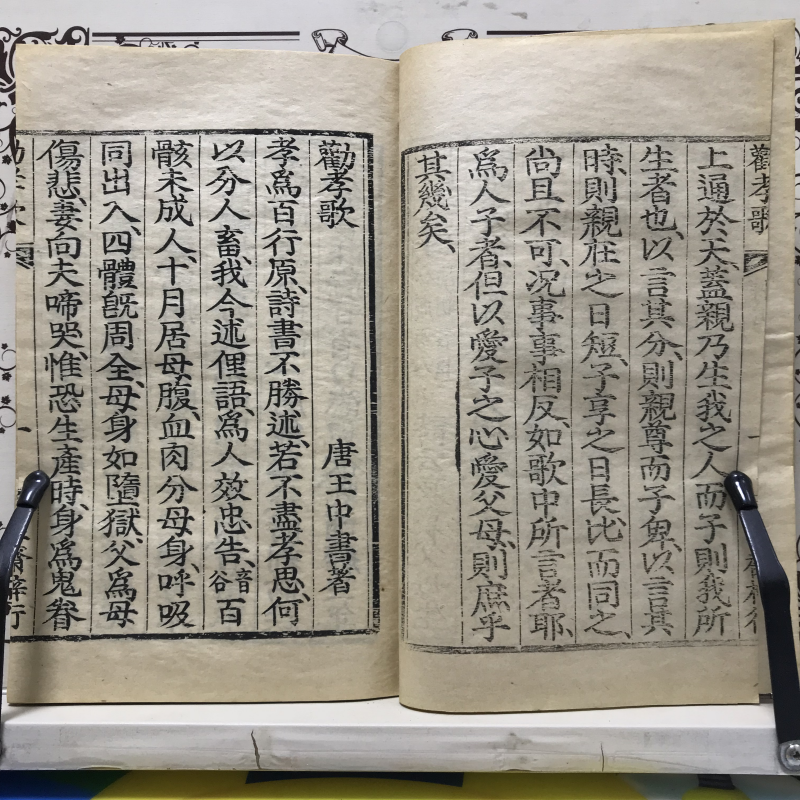 勸孝歌
上通於天、蓋親乃生我之人而子則我所
生者也、以言其分、則親尊而子卑、以言其
時、則親在之日短、子享之日長、比而同之、
尚且不可、況事事相反、如歌中所言者耶、
為人子者、但以愛子之心愛父母、則庶乎
其幾矣、
勸孝歌
唐王中書著
孝為百行原、詩書不勝述、若不盡孝思、何
以分人畜、我今述俚語、為人效忠告、音谷百
骸未成人、十月居母腹、血肉分母身、呼吸
同出入、四體旣周全、母身如墮獄、父為母
傷悲、妻向夫啼哭、惟恐生產時、身為鬼眷